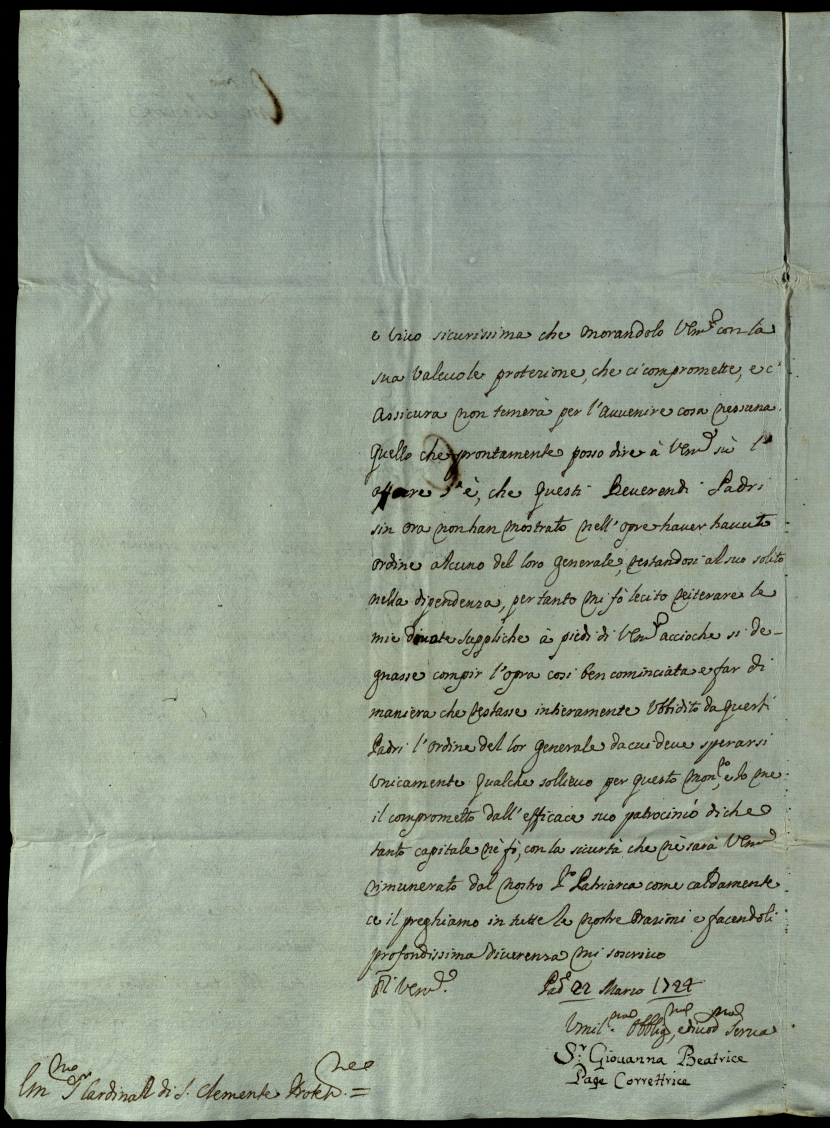 e vivo sicurissima che onorandolo V Em.ª con la
sua Valevole protezione, che ci compromette, e c'
Assicura non temerà per l'Avvenire cosa nessuna.
Quello che prontamente posso dire à V Em.ª sù l'
affare è, che questi Reverendi Padri
sin ora non han mostrato nell'opre haver havuto
ordine alcuno del loro Generale, restandosi al suo solito
nella dipendenza, per tanto mi fò lecito reiterare le
mie Suppliche à piedi di V Em.ª accioche si de-
gnasse compir l'opra così ben cominciata e far di
maniera che restasse intieramente Ubbidito da questi
Padri l'Ordine del lor Generale da cui deve sperarsi
Unicamente qualche sollievo per questo Mon.ro, e lo me
il comprometto dall'efficace suo patrocinio di che
tanto capitale ne fò, con la sicurtà che ne sarà V Em.ª
rimunerato dal nostro P.º Patriarca come caldamente
ce il preghiamo in tutte le nostre Orazioni e facendoli
profondissima riverenza mi soscrivo
Di V Em.ª Marzo 1724
Umil.ma Obblig.ma e divod.ma Serva
S.r Giovanna Beatrice
Page Correttrice
Em.mo S.r Cardinal di S. Clemente =